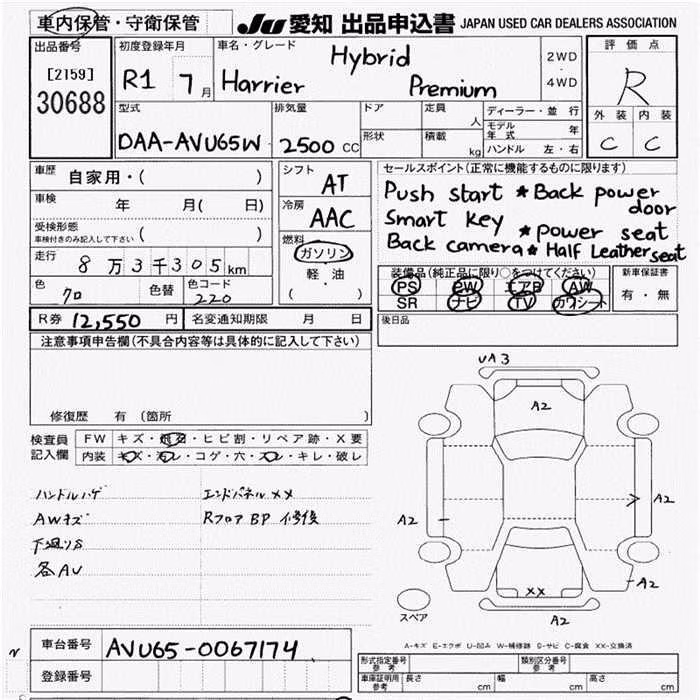 車内保管・守衛保管
JU 愛知 出品申込書 JAPAN USED CAR DEALERS ASSOCIATION
出品番号
[2159]
30688
初度登録年月
R1 7月
車名・グレード
Hybrid
Harrier Premium
2WD
4WD
評価点
R
外装 内装
C C
型式
DAA-AVU65W
排気量
2500 CC
ドア
形状
定員
人
積載
kg
ディーラー・並行
モデル年式 年
ハンドル 左・右
車歴 自家用・( )
車検 年 月( 日)
受検形態
車検付きのみ記入して下さい ( )
走行 8万3千305km
色 クロ 色替 色コード 220
シフト AT
冷房 AAC
燃料
ガソリン
軽・油
( )
セールスポイント(正常に機能するものに限ります)
Push start *Back power door
Smart Key *Power seat
Back camera*Half Leather seat
装備品(純正品に限り○をつけてください)
PS PW エアB AW
SR ナビ TV カワシート
新車保証書
有・無
R券 12,550円 名変通知期限 月 日
後日品
注意事項申告欄(不具合内容等は具体的に記入して下さい)
修復歴 有(箇所 )
検査員記入欄
FW キズ・飛石・ヒビ割・リペア跡・X要
内装 キズ・汚レ・コゲ・穴・スレ・キレ・破レ
ハンドルハゲ
AWキズ
下廻りS
各AU
エンドパネルXX
RフロアBP修後
UA3
A2
A2
A2
A2
XX
A2
スペア
A-キズ E-エクボ U-凹み W-補修跡 S-サビ C-腐食 XX-交換済
車台番号 AVU65-0067174
登録番号
形式指定番号
参考
類別区分番号
参考
車庫証明用
参考
長さ cm 幅 cm 高さ cm